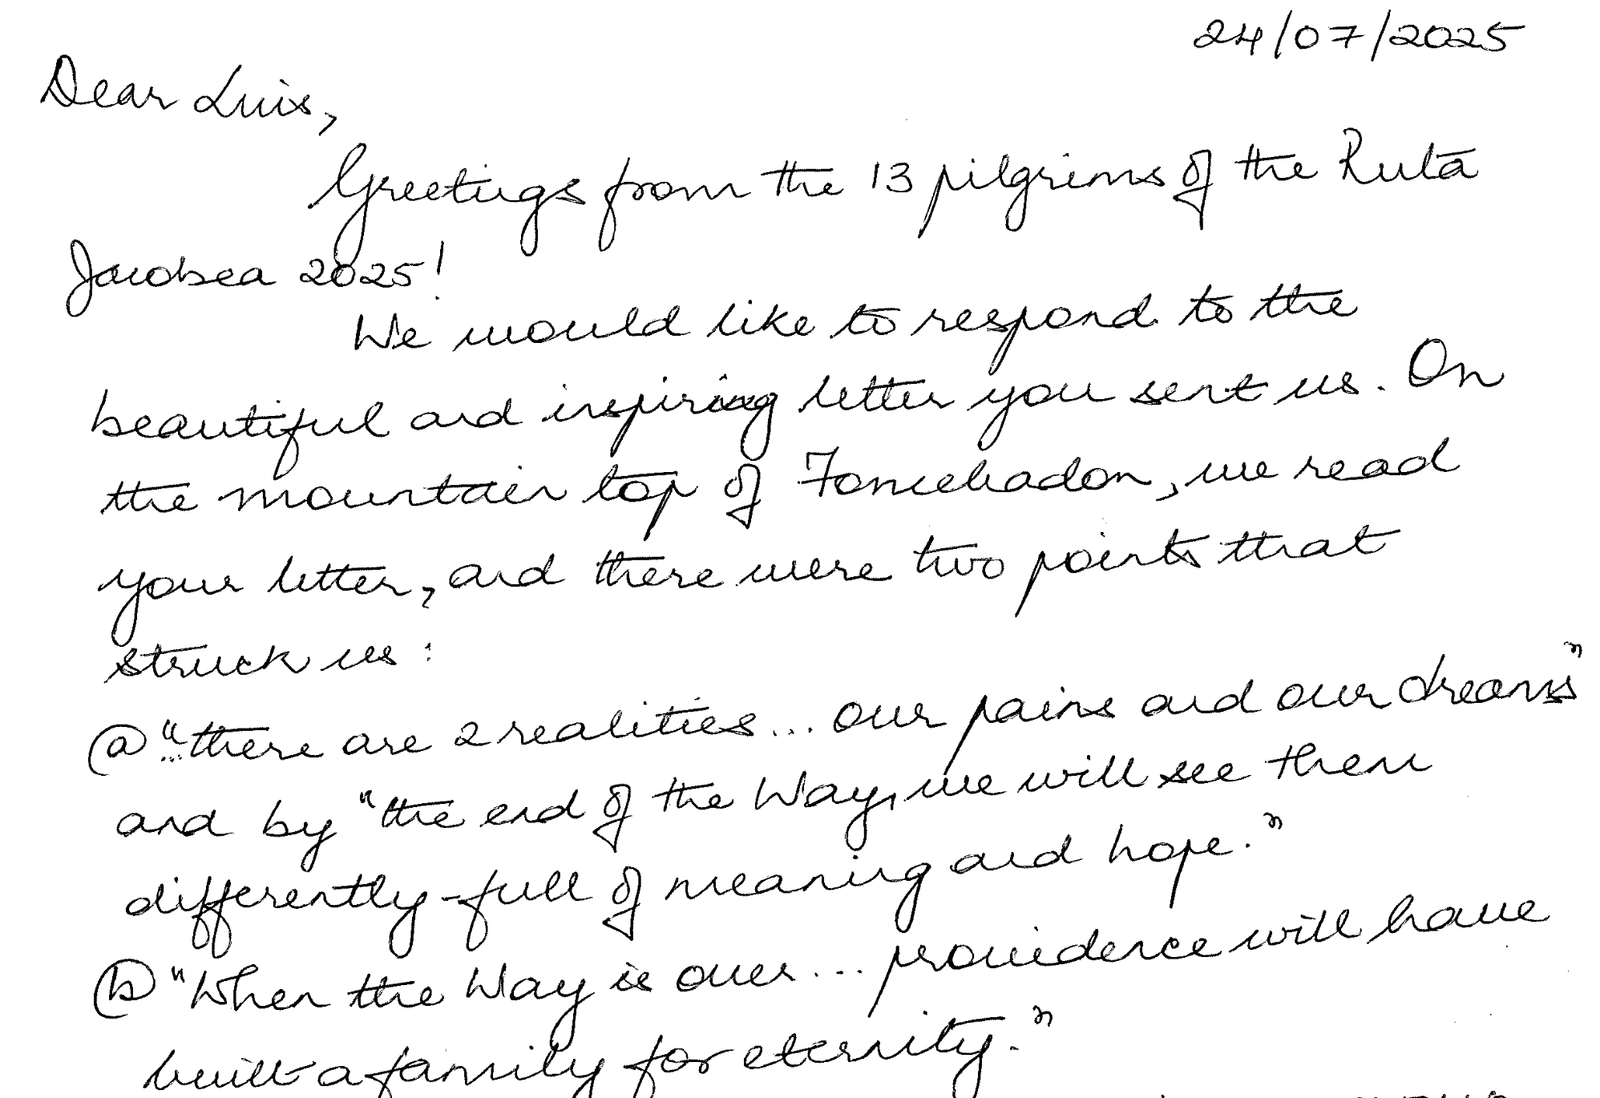 24/07/2025
Dear Luis,
Greetings from the 13 pilgrims of the Ruta
Jacobea 2025!
We would like to respond to the
beautiful and inspiring letter you sent us. On
the mountain top of Foncebadon, we read
your letter, and there were two points that
struck us:
(a) "...there are 2 realities... our pains and our dreams"
and by "the end of the Way, we will see them
differently - full of meaning and hope."
(b) "When the Way is over... providence will have
built a family for eternity."